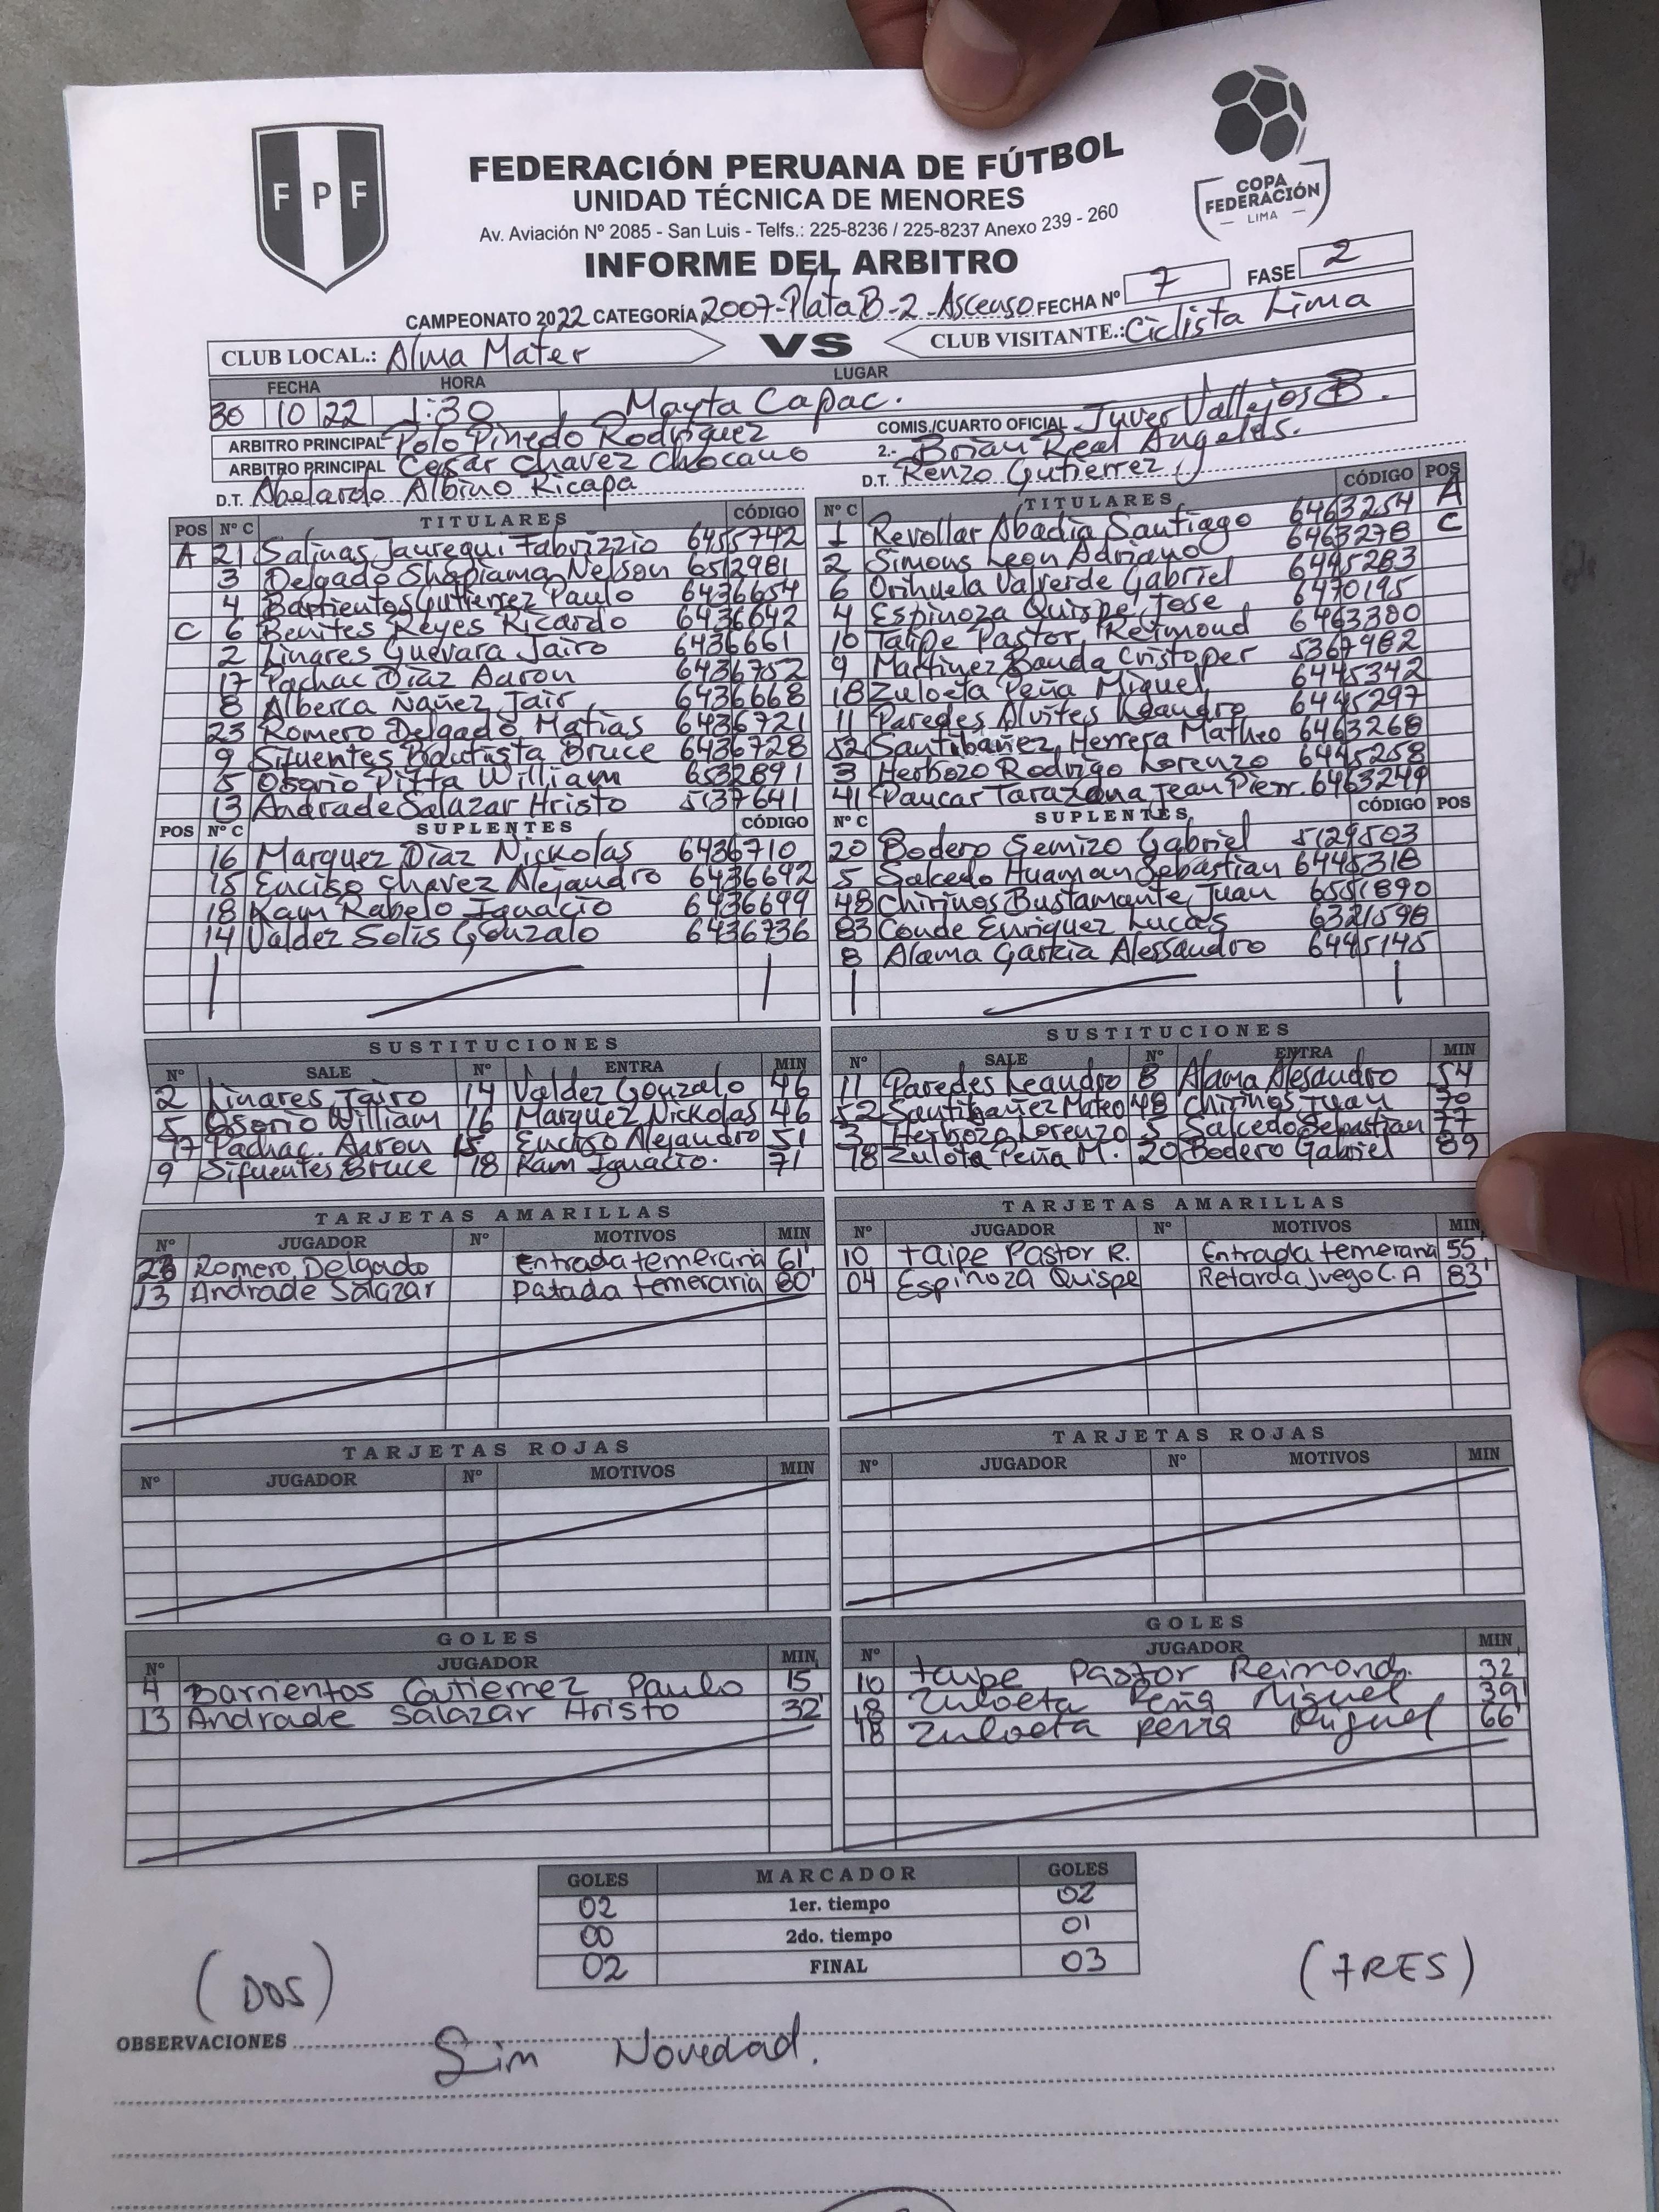 FPF
COPA
FEDERACIÓN
LIMA
FEDERACIÓN PERUANA DE FÚTBOL
UNIDAD TÉCNICA DE MENORES
Av. Aviación Nº 2085 - San Luis - Telfs.: 225-8236 / 225-8237 Anexo 239 - 260
INFORME DEL ARBITRO
CAMPEONATO 2022 CATEGORÍA 2007-Plata B-2-Ascenso FECHA Nº 7 FASE 2
CLUB LOCAL.: Alma Mater VS CLUB VISITANTE.: Ciclista Lima
FECHA HORA LUGAR
30 10 22 1:30 Mayta Capac.
ARBITRO PRINCIPAL Polo Pinedo Rodriguez COMIS./CUARTO OFICIAL Juver Vallejos B.
ARBITRO PRINCIPAL Cesar Chavez Chocano 2.- Brian Real Angeles.
D.T. Abelardo Albino Ricapa D.T. Renzo Gutierrez
POS Nº C TITULARES CÓDIGO Nº C TITULARES CÓDIGO POS
A 21 Salinas Jauregui Fabrizzio 6455742 1 Revollar Abadia Santiago 6463254 A
3 Delgado Shapiama Nelson 6512981 2 Simous Leon Adriano 6463278 C
4 Barrientos Gutierrez Paulo 6436654 6 Orihuela Valverde Gabriel 6445283
C 6 Benites Reyes Ricardo 6436642 4 Espinoza Quispe Jose 6470195
2 Linares Guevara Jairo 6436661 10 Taipe Pastor Reimond 6463300
17 Pachac Diaz Aaron 6436752 9 Martinez Banda Cristoper 5367982
8 Alberca Ñañez Jair 6436668 18 Zuloeta Peña Miguel 6445342
23 Romero Delgado Matias 6436721 11 Paredes Alvites Leandro 6445297
9 Sifuentes Bautista Bruce 6436728 52 Santibañez Herrera Matheo 6463268
5 Osorio Pitta William 6532891 3 Herbozo Rodrigo Lorenzo 6445258
13 Andrade Salazar Hristo 5137641 41 Paucar Tarazona Jean Pierr. 6463249
POS Nº C SUPLENTES CÓDIGO Nº C SUPLENTES CÓDIGO POS
16 Marquez Diaz Nickolas 6436710 20 Bodero Semizo Gabriel 5129503
15 Enciso Chavez Alejandro 6436692 5 Salcedo Huaman Sebastian 6445318
18 Kam Rabelo Ignacio 6436699 48 Chirinos Bustamante Juan 6551890
14 Valdez Solis Gonzalo 6436736 83 Conde Enriquez Lucas 6321598
8 Alama Garkia Alessandro 6445145
SUSTITUCIONES SUSTITUCIONES
Nº SALE Nº ENTRA MIN Nº SALE Nº ENTRA MIN
2 Linares Jairo 14 Valdez Gonzalo 46 11 Paredes Leandro 8 Alama Alesandro 54
5 Osorio William 16 Marquez Nickolas 46 52 Santibañez Mateo 48 Chirinos Juan 70
17 Pachac. Aaron 15 Enciso Alejandro 51 3 Herbozo Lorenzo 5 Salcedo Sebastian 77
9 Sifuentes Bruce 18 Kam Ignacio. 71 18 Zulota Peña M. 20 Bodero Gabriel 89
TARJETAS AMARILLAS TARJETAS AMARILLAS
Nº JUGADOR Nº MOTIVOS MIN Nº JUGADOR Nº MOTIVOS MIN
23 Romero Delgado Entrada temeraria 61' 10 taipe Pastor R. Entrada temeraria 55'
13 Andrade Salazar Patada temeraria 80' 04 Espinoza Quispe Retarda Juego C.A 83'
TARJETAS ROJAS TARJETAS ROJAS
Nº JUGADOR Nº MOTIVOS MIN Nº JUGADOR Nº MOTIVOS MIN
GOLES GOLES
Nº JUGADOR MIN Nº JUGADOR MIN
4 Barrientos Gutierrez Paulo 15' 10 taipe Pastor Reimond. 32
13 Andrade Salazar Hristo 32' 18 Zuloeta Peña Miguel 39'
18 Zuloeta peña Miguel 66'
GOLES MARCADOR GOLES
02 1er. tiempo 02
00 2do. tiempo 01
02 FINAL 03
(DOS) (TRES)
OBSERVACIONES Sin Novedad.